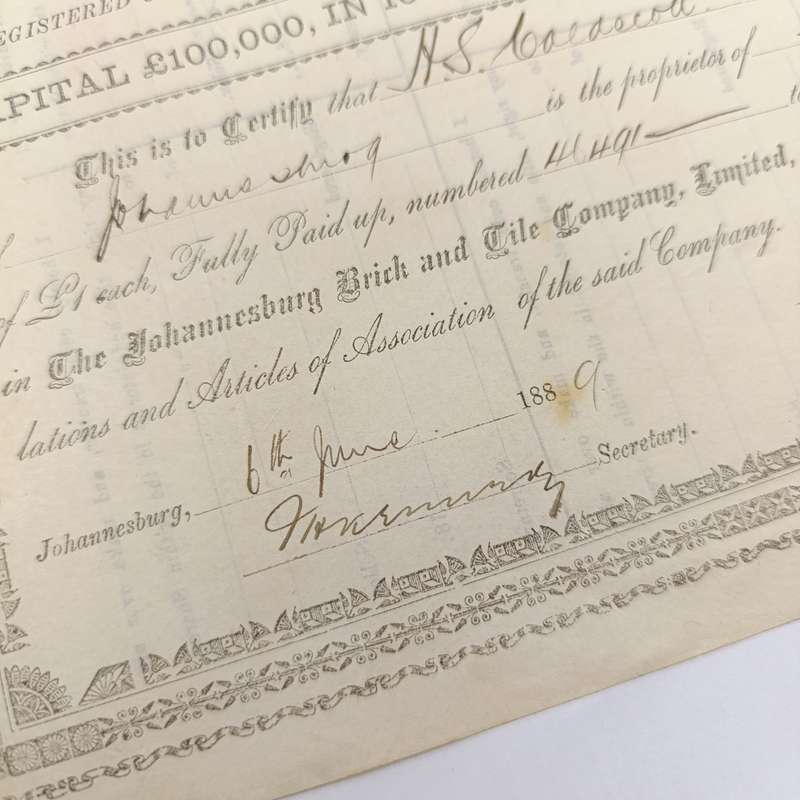 REGISTERED
CAPITAL £100,000, IN
This is to Certify that H.S.
Johannesburg is the proprietor of
of £1 each, Fully Paid up, numbered 41491
in The Johannesburg Brick and Tile Company, Limited,
lations and Articles of Association of the said Company.
Johannesburg, 6th June 1889
Secretary.